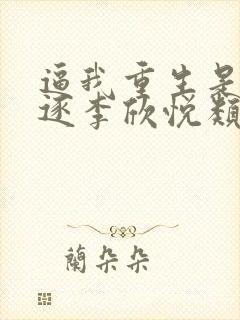 逼我重生是
逐李欣悦颓
蘭朵朵